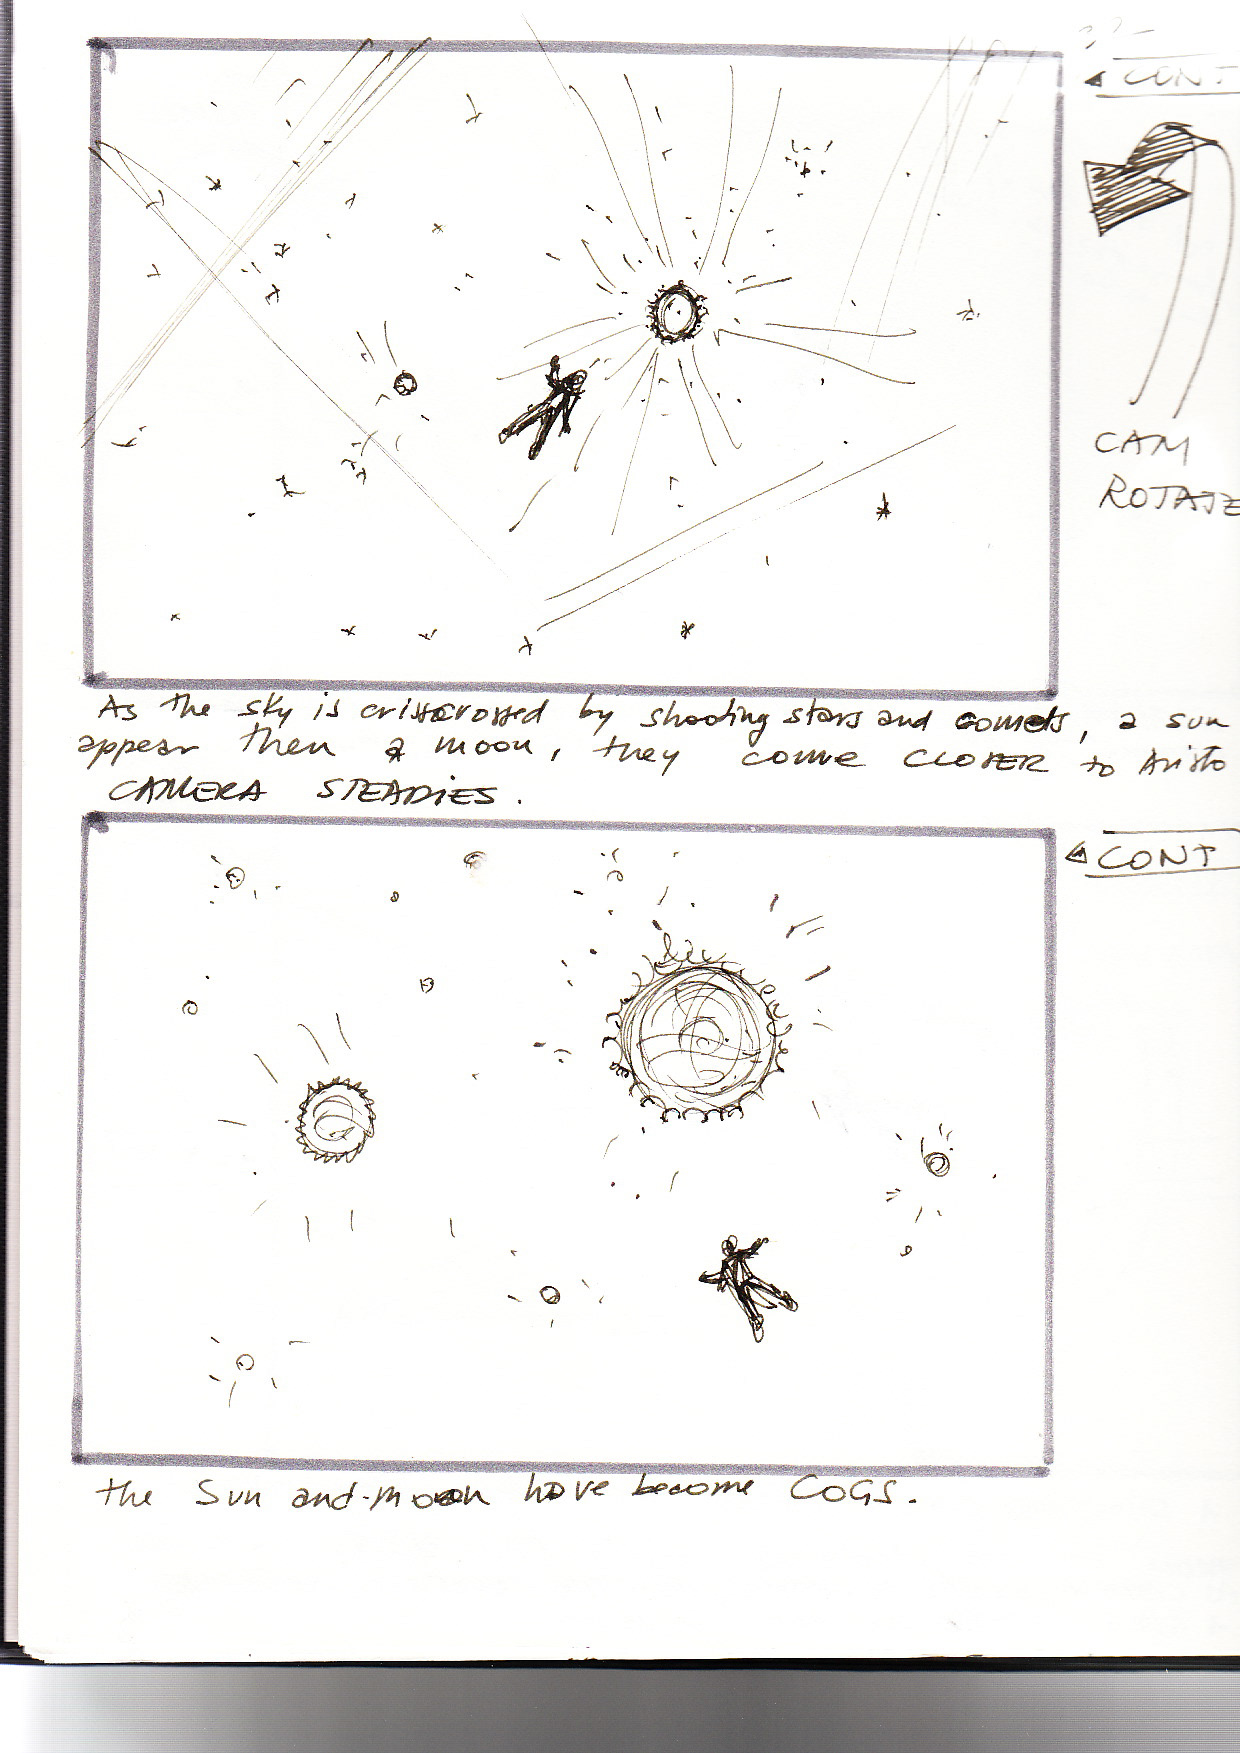 CONT
CAM
ROTATE
As the sky is crisscrossed by shooting stars and comets, a sun
appear then a moon, they come CLOSER to Aristo
CAMERA STEADIES.
CONT
the Sun and moon have become COGS.